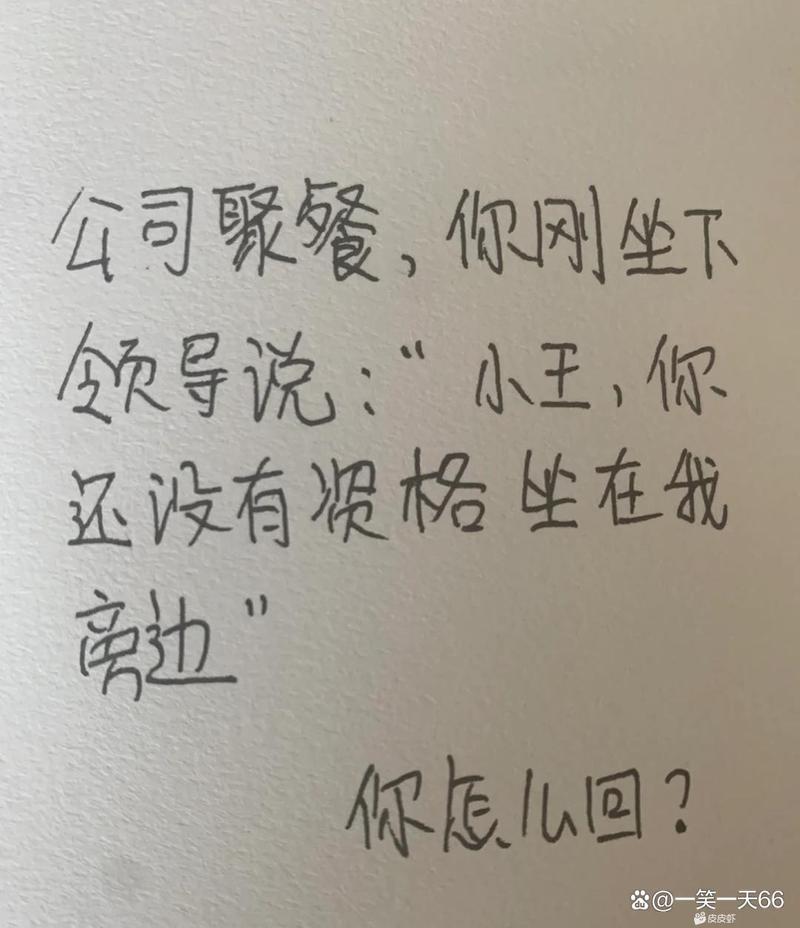 公司聚餐，你刚坐下
领导说：“小王，你
还没有资格坐在我
旁边”
你怎么回？
@一笑一天66
皮皮虾